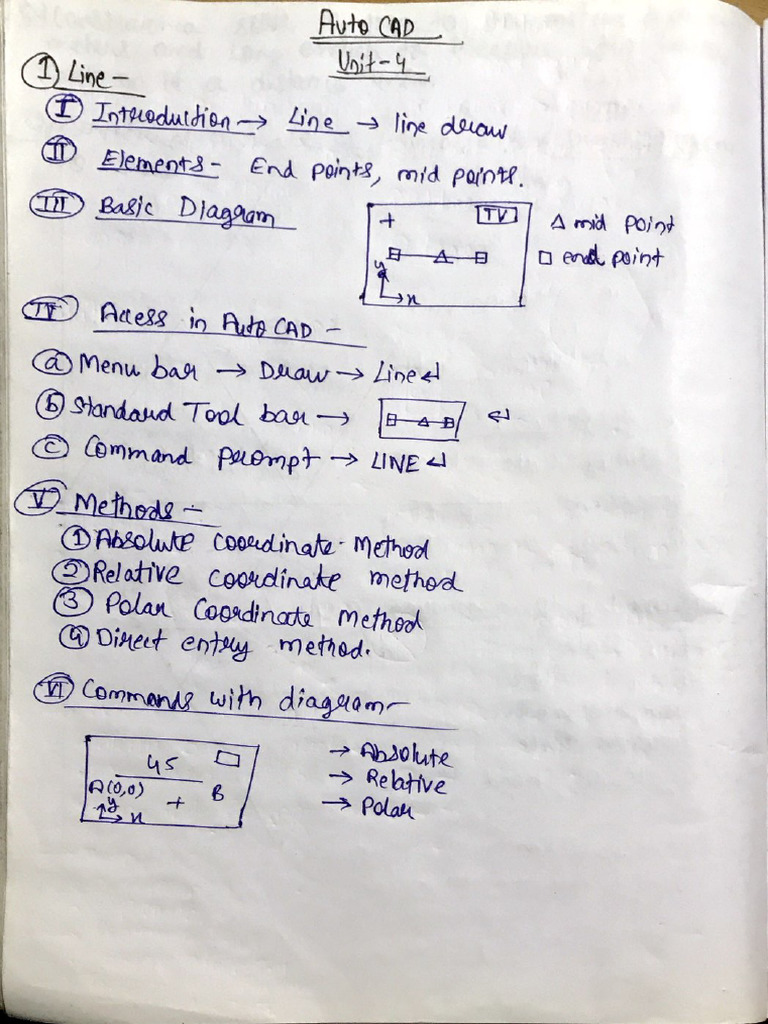 Auto CAD
Unit-4
① Line -
Ⓘ Introduction → Line → line draw
Ⅱ Elements - End points, mid points.
Ⅲ Basic Diagram
+ TV
△ mid point
□ end point
y
x
Ⅳ Access in Auto CAD -
ⓐ Menu bar → Draw → Line ↵
ⓑ Standard Tool bar → ↵
ⓒ Command prompt → LINE ↵
Ⅴ Methods -
① Absolute coordinate Method
② Relative coordinate method
③ Polar Coordinate Method
④ Direct entry method.
Ⅵ Commands with diagram -
45
A(0,0) + B
y
x
→ Absolute
→ Relative
→ Polar